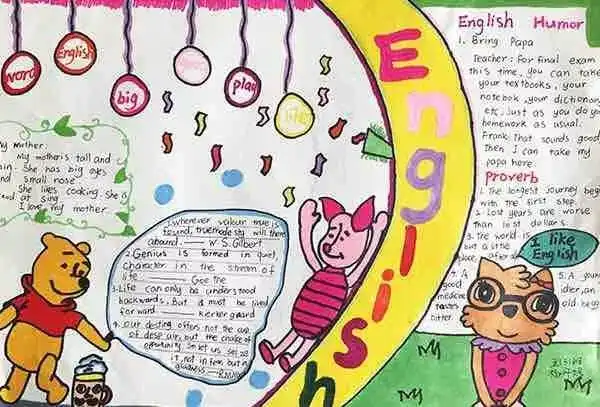 word
English
big
play
English
My Mother:
My mother is tall and
thin. She has big eyes
and small nose.
She likes cooking. She is
good at sing
I love my mother.
1. wherever valour true is
found, true modesty will there
abound. —— W.S. Gilbert
2. Genius is formed in quiet,
character in the stream of
life —— Goethe
3. Life can only be understood
backwards. But it must be lived
forward —— kerkergaard
4. our destiny offers not the cup
of despair, but the chalice of
opportunity So let us seize
it, not in fear, but in
gladness
English Humor
1. Bring Papa
Teacher: For final exam
this time, you can take
your textbooks, your
notebook, your dictionary
etc, Just as you do your
homework as usual.
Frank: That sounds good
Then I can take my
papa here.
Proverb
1. The longest journey begins
with the first step.
2. Lost years are worse
than lost dollars.
3. the world is
but a little
place, after all
I like
English
4. A
good
medicine
tastes
bitter.
5. A young
idler, an
old beggar